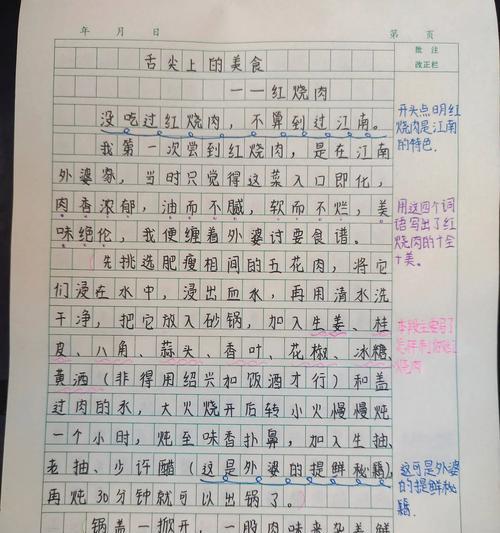 年 月 日 第 页
批 注
改正栏
舌尖上的美食
——红烧肉
没吃过红烧肉，不算到过江南。
我第一次尝到红烧肉，是在江南
外婆家，当时只觉得这菜入口即化，
肉香浓郁，油而不腻，软而不烂，美
味绝伦，我便缠着外婆讨要食谱。
先挑选肥瘦相间的五花肉，将它
们浸在水中，浸出血水，再用清水洗
干净，把它放入砂锅，加入生姜、桂
皮、八角、蒜头、香叶、花椒、冰糖、
黄酒（非得用绍兴加饭酒才行）和盖
过肉的水，大火烧开后转小火慢慢炖
一个小时，炖至味香扑鼻，加入生抽、
老抽、少许醋（这是外婆的提鲜秘籍），
再炖30分钟就可以出锅了。
锅盖一掀开，一股肉味夹杂着鲜
开头点明红
烧肉是江南
的特色.
用这四个词
语写出了红
烧肉的十全
十美。
本段主要写了
怎样制作红
烧肉
这可是外婆
的提鲜秘
籍.